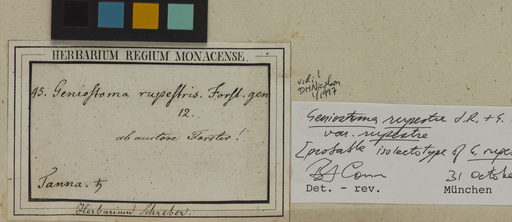 HERBARIUM REGIUM MONACENSE.
45. Genioſtoma rupeſtris. Forſt. gen
12.
ab auctore Forster!
Tanna. ♄
Herbarium Schreber.
vidi!
1/1977
Geniostoma rupestre J.R. + G.
var. rupestre
[probable isolectotype of G. rupe
BJ Conn 31 Octobe
Det. - rev. München